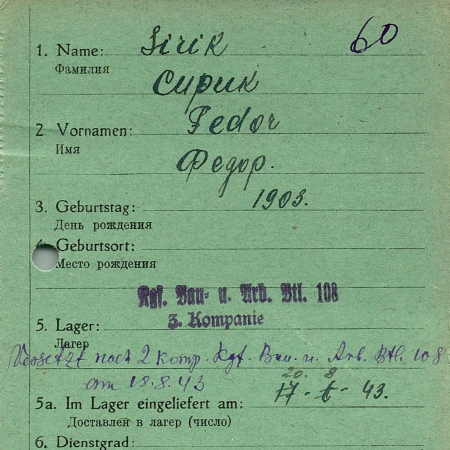 60
1. Name: Sirik
Фамилия Сирик
2. Vornamen: Fedor
Имя Федор.
3. Geburtstag: 1903.
День рождения
4. Geburtsort:
Место рождения
Kgf. Bau- u. Arb. Btl. 108
3. Kompanie
5. Lager:
Лагер
Versetzt nach 2 Komp. Kgf. Bau. u. Arb. Btl. 108
am 18.8.43
20. 8
5a. Im Lager eingeliefert am: 17 - 6 - 43.
Доставлен в лагер (число)
6. Dienstgrad: